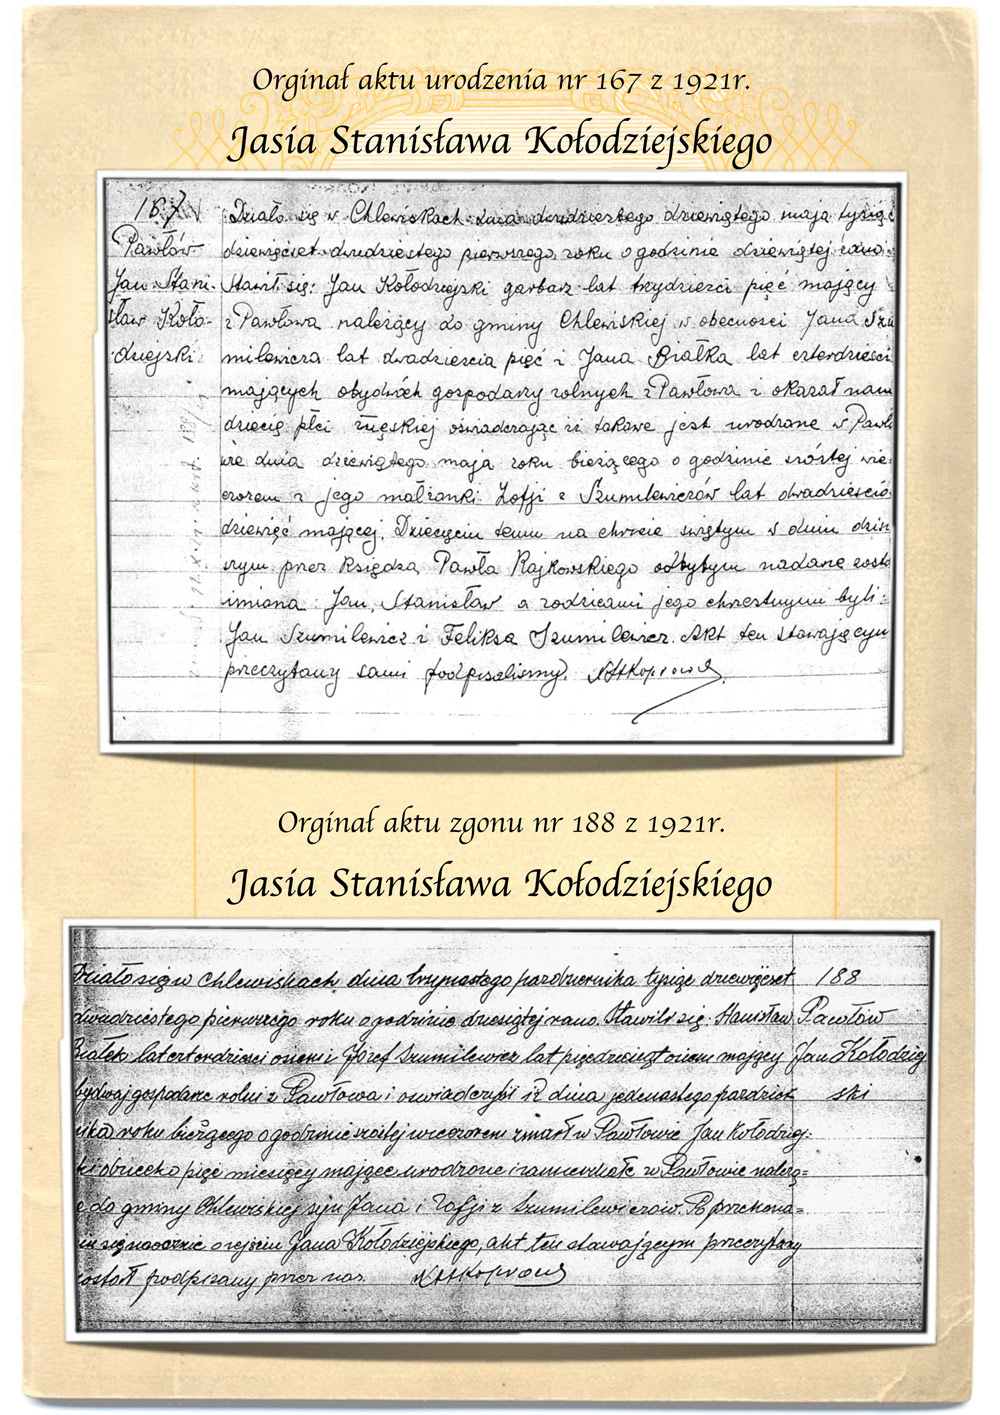 Orginał aktu urodzenia nr 167 z 1921r.
Jasia Stanisława Kołodziejskiego
167
Pawłów
Jan Stani-
sław Koło-
dziejski
Działo się w Chlewiskach dnia dwudziestego dziewiątego maja tysiąc
dziewięćset dwudziestego pierwszego roku o godzinie dziewiątej rano
Stawił się: Jan Kołodziejski garbarz lat trzydzieści pięć mający
z Pawłowa należący do gminy Chlewiskiej w obecności Jana Szu
milewicza lat dwadzieścia pięć i Jana Białka lat czterdzieści
mających obydwóch gospodarzy rolnych z Pawłowa i okazał nam
dziecię płci męskiej oświadczając iż takowe jest urodzone w Pawło
wie dnia dziewiątego maja roku bieżącego o godzinie szóstej wie-
czorem z jego małżonki Zofji z Szumilewiczów lat dwadzieścia
dziewięć mającej. Dziecięciu temu na chrzcie świętym w dniu dzisi
szym przez Księdza Pawła Rajkowskiego odbytym nadane zosta
imiona: Jan, Stanisław a rodzicami jego chrzestnymi byli:
Jan Szumilewicz i Feliksa Szumilewicz. Akt ten stawającym
przeczytany sami podpisaliśmy.
Orginał aktu zgonu nr 188 z 1921r.
Jasia Stanisława Kołodziejskiego
Działo się w Chlewiskach dnia trzynastego października tysiąc dziewięćset
dwadziestego pierwszego roku o godzinie dziesiątej rano. Stawili się: Stanisław
Białek lat czterdzieści osiem i Józef Szumilewicz lat pięćdziesiąt osiem mający
bydwaj gospodarze rolni z Pawłowa i oświadczyli iż dnia jedenastego paździer
nika roku bieżącego o godzinie szóstej wieczorem zmarł w Pawłowie Jan Kołodziej-
ski dziecko pięć miesięcy mające urodzone i zamieszkałe w Pawłowie należą=
e do gminy Chlewiskiej syn Jana i Zofji z Szumilewiczów. Po przekona=
iu się naocznie o zejściu Jana Kołodziejskiego, akt ten stawającym przeczytany
ostał podpisany przez nas.
188
Pawłów
Jan Kołodziej
ski